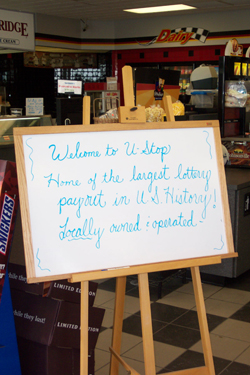 RIDGE
Welcome to U-Stop
Home of the largest lottery
payout in U.S. History!
Locally owned & operated -
SNICKERS
while they last!
LIMITED EDITION
LIMITED EDITION